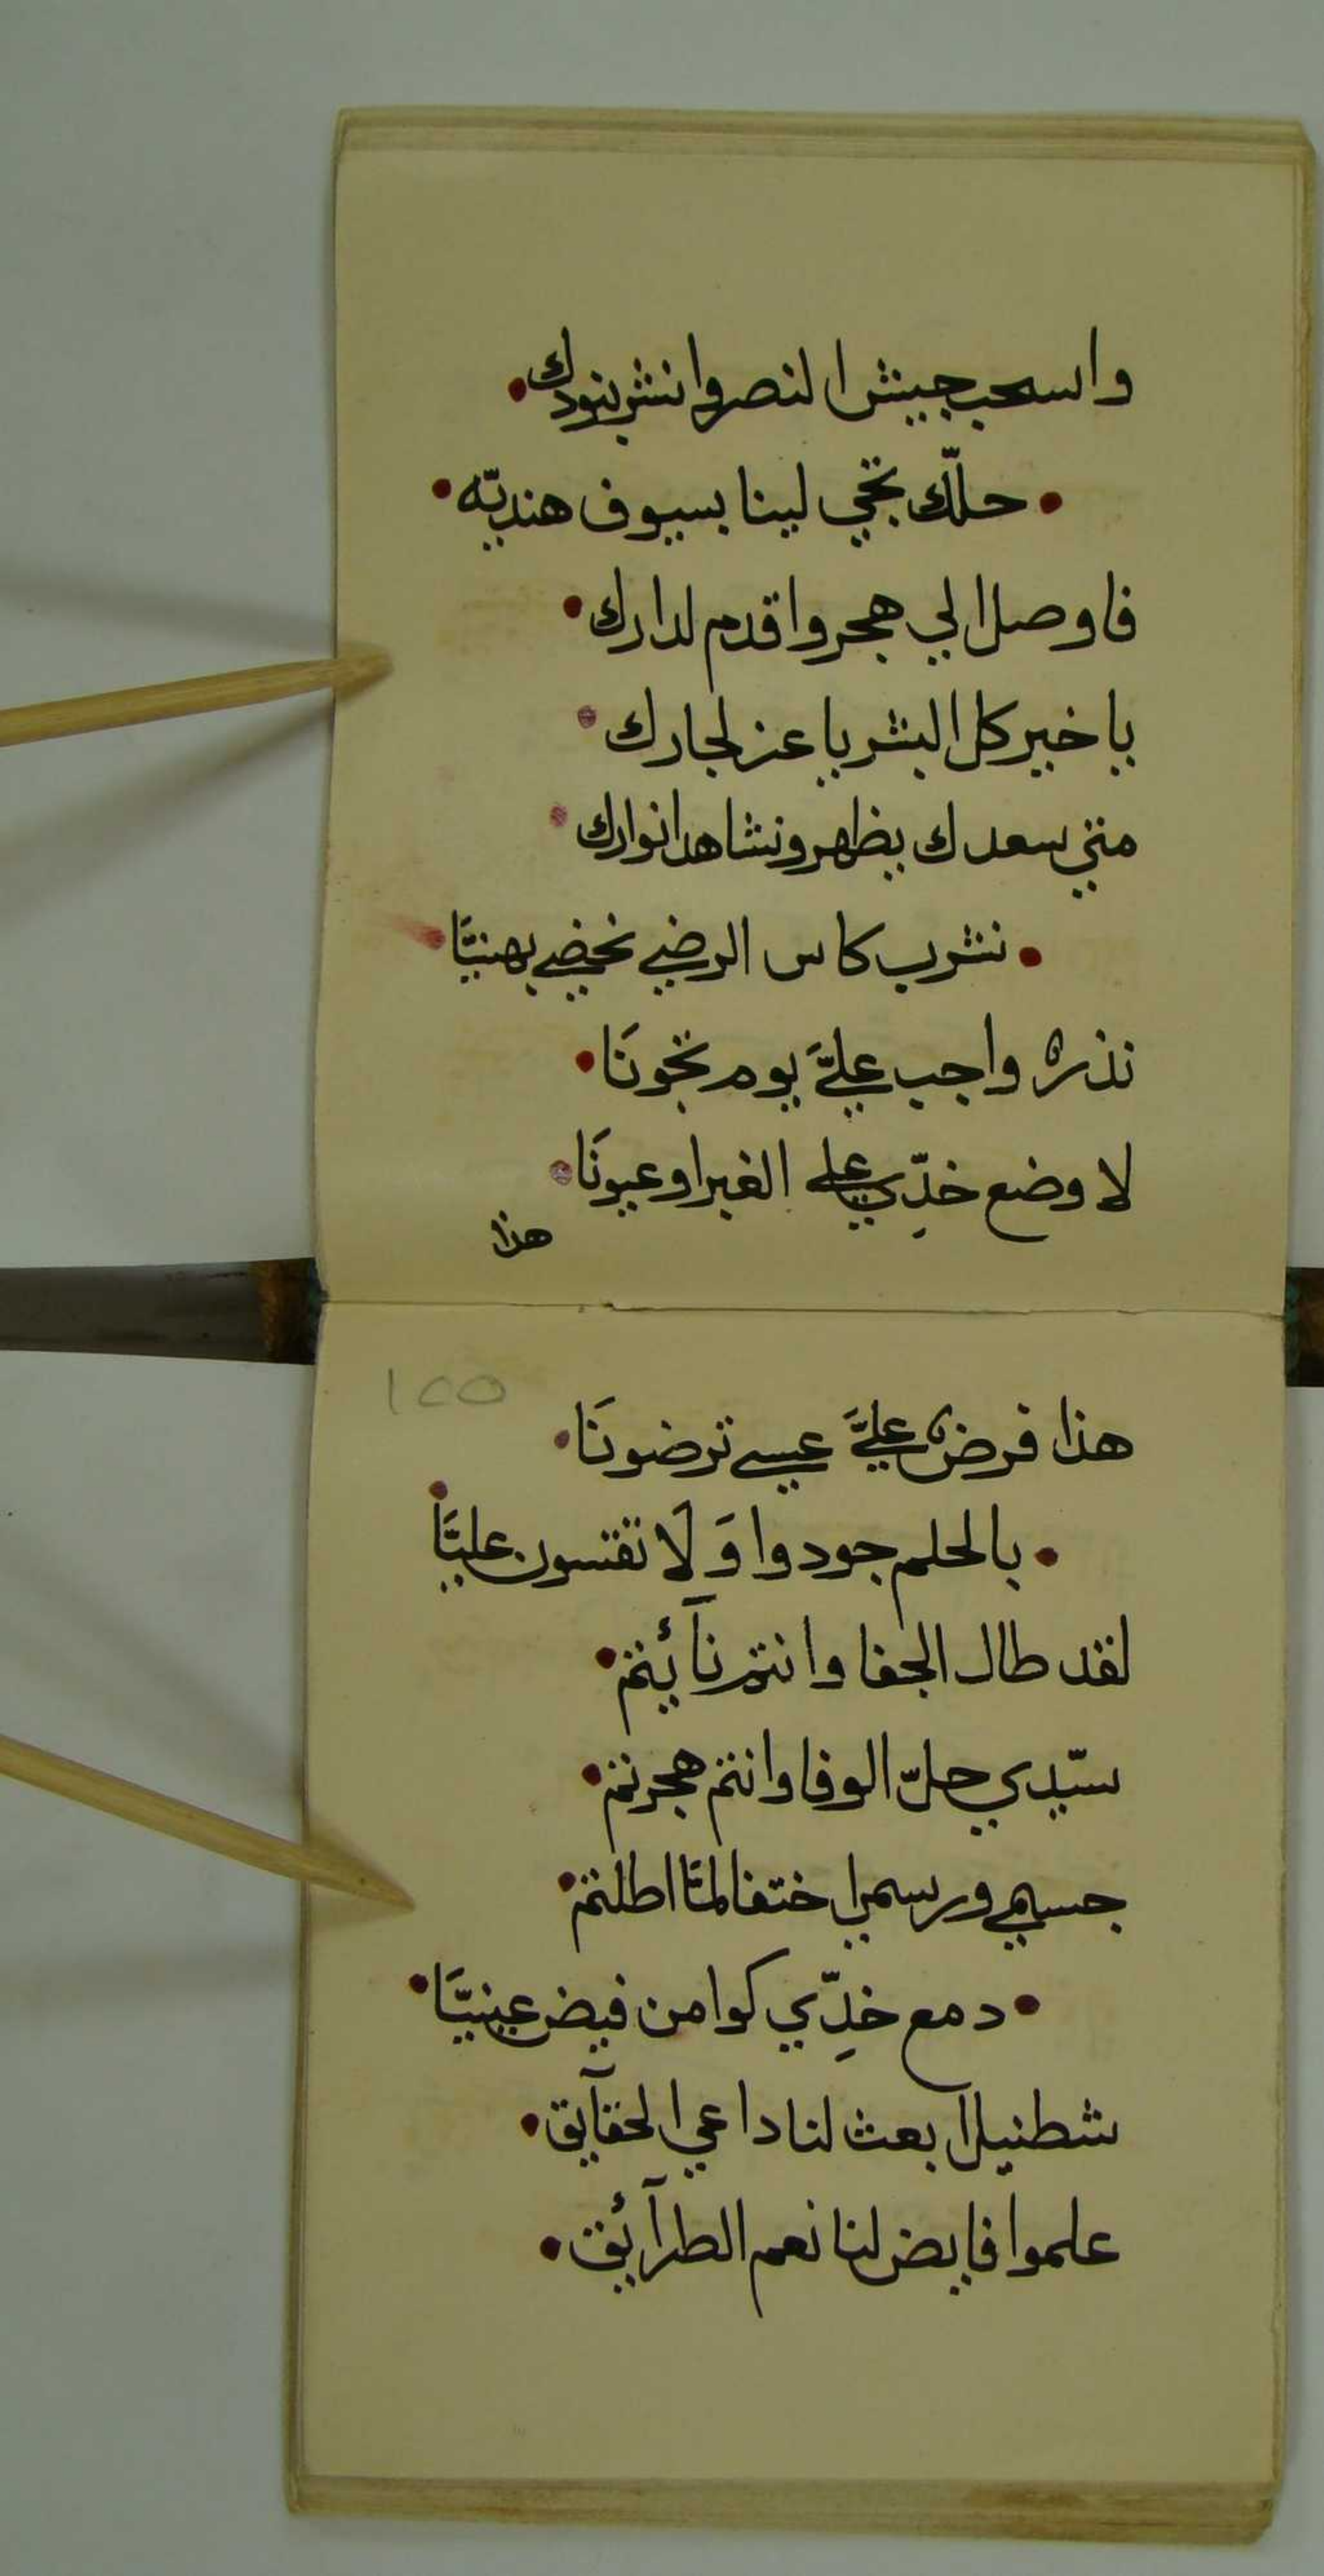 واسحب جيش النصر وانشر بنودك
حلّك تجي لينا بسيوف هنديّه
فاوصل الي هجر واقدم لدارك
ياخير كل البشر ياعز لجارك
متي سعدك يظهر ونشاهد انوارك
نشرب كاس الرضي نحضي بهنيَّا
نذرٌ واجب عليَّ يوم تجونَا
لاوضع خدّي علي الغبرا وعيونَا
هذا
١٢٥
هذا فرضٌ عليَّ عسي ترضونَا
بالحلم جودوا وَلَا تقسون عليَّا
لقد طال الجفا وانتم نآئيتم
سيّدي حلّ الوفا وانتم هجرتم
جسمي ورسمي اختفا لمَّا اطلتم
دمع خدِّي كوا من فيض عينيَّا
شطنيل ابعث لنا داعي الحقآيق
علموا فايض لنا نعم الطرآئيق